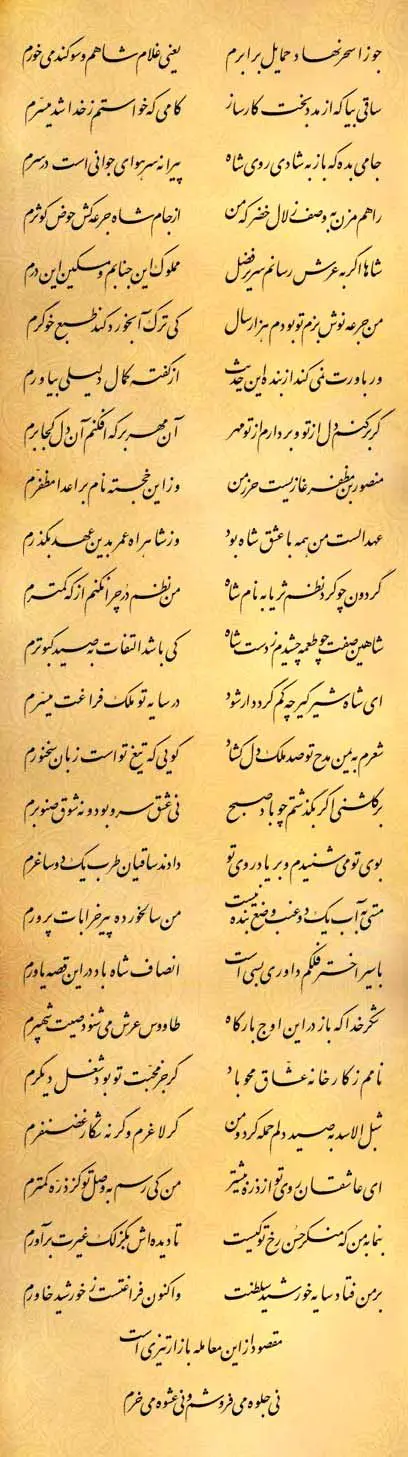 جوزا سحر نهاد حمایل برابرم یعنی غلام شاهم و سوگند می خورم
ساقی بیا که از مدد بخت کارساز کامی که خواستم ز خدا شد میسرم
جامی بده که باز به شادی روی شاه پیرانه سر هوای جوانی است در سرم
راهم مزن به وصف زلال خضر که من از جام شاه جرعه کش حوض کوثرم
شاها اگر به عرش رسانم سریر فضل مملوک این جنابم و مسکین این درم
من جرعه نوش بزم تو بودم هزار سال کی ترک آبخورد کند طبع خوگرم
ور باورت نمی کند از بنده این حدیث از گفته کمال دلیلی بیاورم
گر برکنم دل از تو و بردارم از تو مهر آن مهر بر که افکنم آن دل کجا برم
منصور بن مظفر غازیست حرز من و از این خجسته نام بر اعدا مظفرم
عهد الست من همه با عشق شاه بود وز شاهراه عمر بدین عهد بگذرم
گردون چو کرد نظم ثریا به نام شاه من نظم در چرا نکنم از که کمترم
شاهین صفت چو طعمه چشیدم ز دست شاه کی باشد التفات به صید کبوترم
ای شاه شیرگیر چه کم گردد ار شود در سایه تو ملک فراغت میسرم
شعرم به یمن مدح تو صد ملک دل گشاد گویی که تیغ تو است زبان سخنورم
بر گلشنی اگر بگذشتم چو باد صبح نی عشق سرو بود و نه شوق صنوبرم
بوی تو می شنیدم و بر یاد روی تو دادند ساقیان طرب یک دو ساغرم
مستی به آب یک دو عنب وضع بنده نیست من سالخورده پیر خرابات پرورم
با سیر اختر فلکم داوری بسی است انصاف شاه باد در این قصه یاورم
شکر خدا که باز در این اوج بارگاه طاووس عرش می شنود صیت شهپرم
نامم ز کارخانه عشاق محو باد گر جز محبت تو بود شغل دیگرم
شبل الاسد به صید دلم حمله کرد و من گر لاغرم وگرنه شکار غضنفرم
ای عاشقان روی تو از ذره بیشتر من کی رسم به وصل تو کز ذره کمترم
بنما به من که منکر حسن رخ تو کیست تا دیده اش به گزلک غیرت برآورم
بر من فتاد سایه خورشید سلطنت و اکنون فراغتست ز خورشید خاورم
مقصود از این معامله بازارتیزی است
نی جلوه می فروشم و نی عشوه می خرم